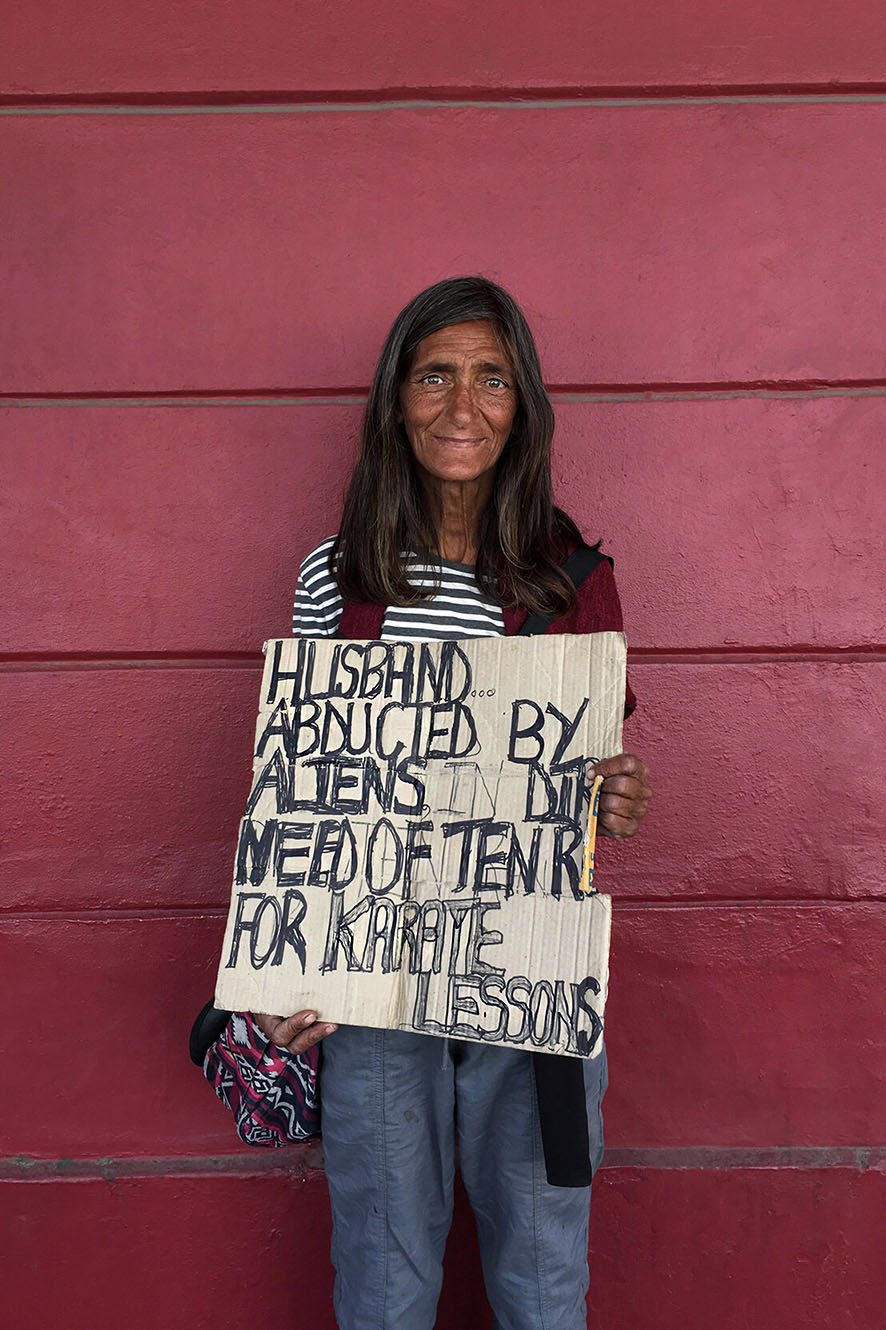 HUSBAND...
ABDUCTED BY
ALIENS. IN DIR
NEED OF TEN R
FOR KARATE
LESSONS